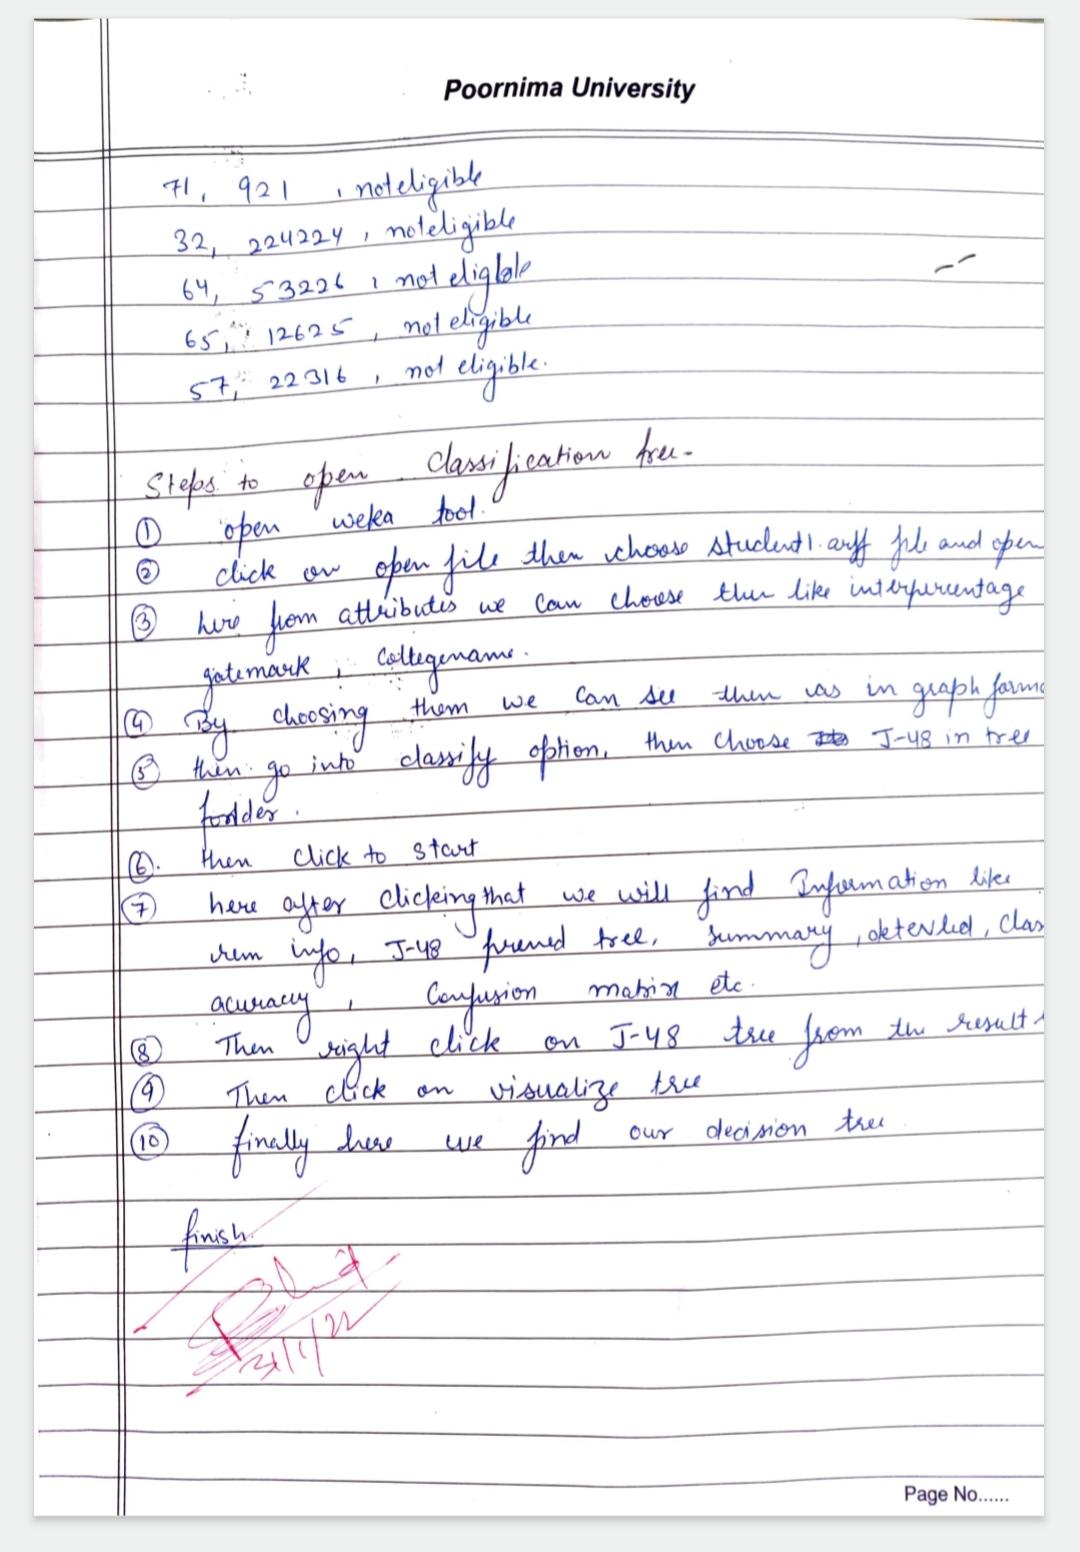 Poornima University
71, 921 , not eligible
32, 224224 , not eligible
64, 53226 , not eligble
65, 12625 , not eligible
57, 22316 , not eligible.
Steps to open classification tree-
① open weka tool.
② click on open file then choose student1.arff file and open
③ here from attributes we can choose then like interpercentage
gatemark , Collegename.
④ By choosing them we can see then as in graph forma
⑤ then go into classify option, then choose J-48 in tree
folder.
⑥. then click to start
⑦ here after clicking that we will find Information like
info, J-48 pruned tree, summary , , Clas
acuracy , Confusion matrix etc.
⑧ Then right click on J-48 tree from the result
⑨ Then click on visualize tree
⑩ finally here we find our decision tree
finish.
Page No......